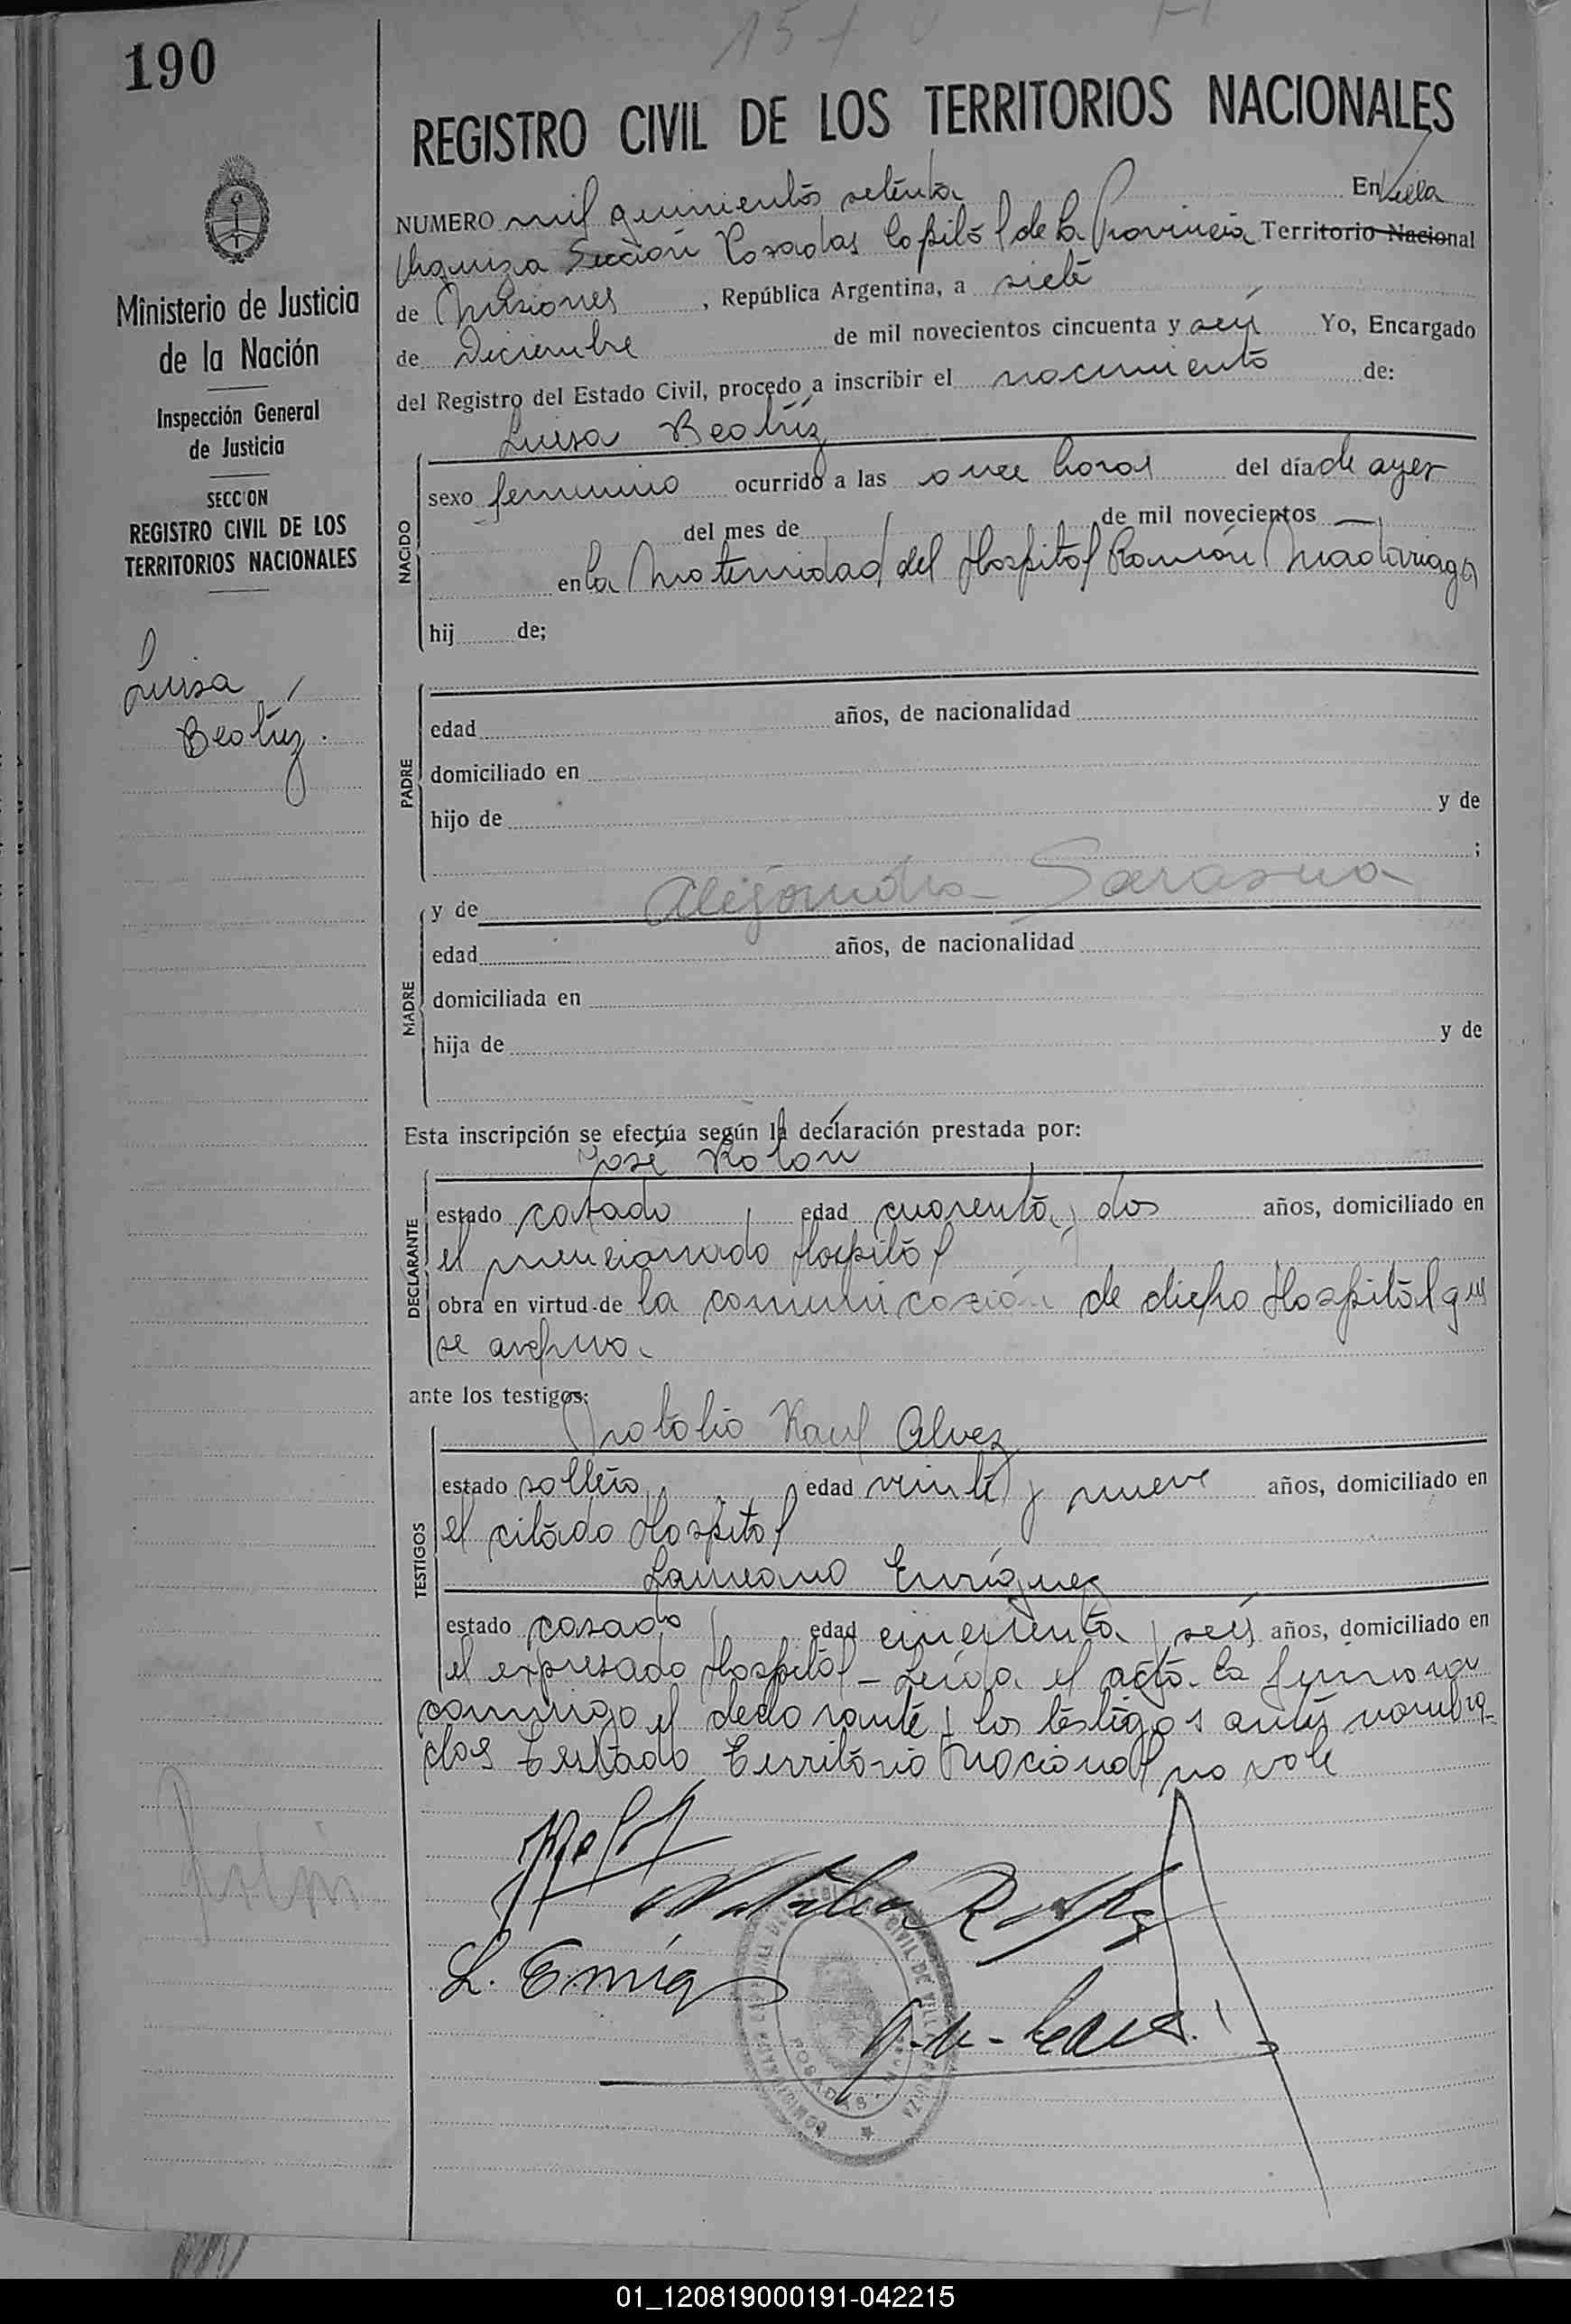 190
REGISTRO CIVIL DE LOS TERRITORIOS NACIONALES
NUMERO mil quinientos setenta En Villa
Urquiza Sección Posadas Capital de la Provincia Territorio Nacional
de Misiones, República Argentina, a siete
de Diciembre de mil novecientos cincuenta y seis Yo, Encargado
del Registro del Estado Civil, procedo a inscribir el nacimiento de:
Luisa Beatríz
NACIDO
sexo femenino ocurrido a las once horas del día de ayer
del mes de de mil novecientos —
en la Maternidad del Hospital Ramón Madariaga
hij de;
PADRE
edad años, de nacionalidad
domiciliado en
hijo de y de
;
y de Alejandra Sarasua
MADRE
edad años, de nacionalidad
domiciliada en
hija de y de
Esta inscripción se efectúa según la declaración prestada por:
José Rolón
DECLARANTE
estado casado edad cuarenta y dos años, domiciliado en
el mencionado Hospital
obra en virtud de la comunicación de dicho Hospital que
se archiva.
ante los testigos:
Natalio Raul Alvez
TESTIGOS
estado soltero, edad veinte y nueve años, domiciliado en
el citado Hospital
Laureano Enríquez
estado casado edad cincuenta y seis años, domiciliado en
el expresado Hospital - Leída el acta la firman
conmigo el declarante y los testigos antes nombra-
dos Testado Territorio Nacional no vale
Natalio R Alvez
L. Enriq
Ministerio de Justicia
de la Nación
Inspección General
de Justicia
SECCION
REGISTRO CIVIL DE LOS
TERRITORIOS NACIONALES
Luisa
Beatríz.
01_120819000191-042215